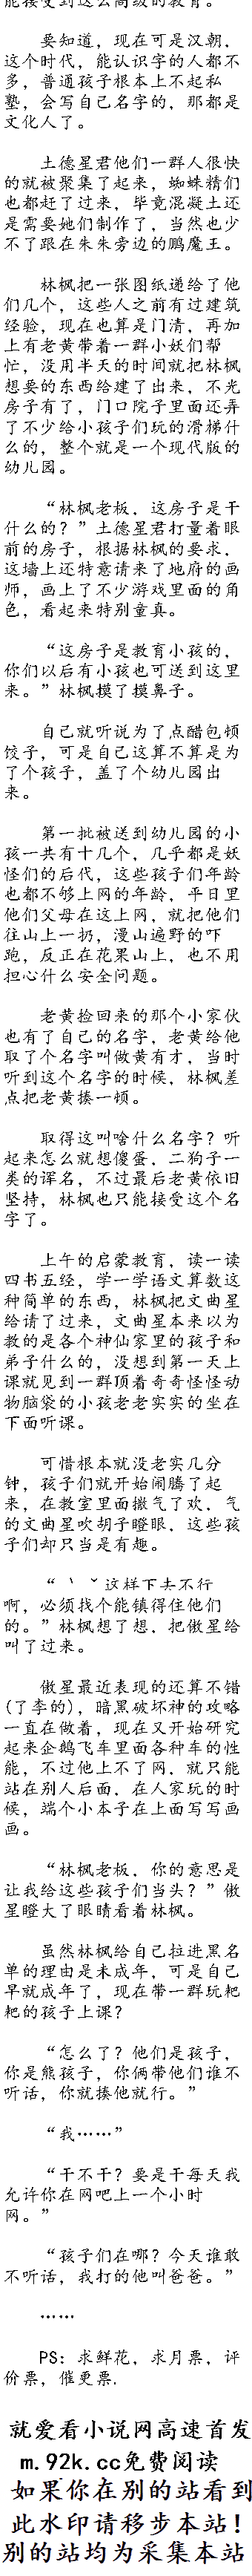 能接受到这么高级的教育。
要知道，现在可是汉朝，
这个时代，能认识字的人都不
多，普通孩子根本上不起私
塾，会写自己名字的，那都是
文化人了。
土德星君他们一群人很快
的就被聚集了起来，蜘蛛精们
也都赶了过来，毕竟混凝土还
是需要她们制作了，当然也少
不了跟在朱朱旁边的鹏魔王。
林枫把一张图纸递给了他
们几个，这些人之前有过建筑
经验，现在也算是门清，再加
上有老黄带着一群小妖们帮
忙，没用半天的时间就把林枫
想要的东西给建了出来，不光
房子有了，门口院子里面还弄
了不少给小孩子们玩的滑梯什
么的，整个就是一个现代版的
幼儿园。
“林枫老板，这房子是干
什么的？”土德星君打量着眼
前的房子，根据林枫的要求，
这墙上还特意请来了地府的画
师，画上了不少游戏里面的角
色，看起来特别童真。
“这房子是教育小孩的，
你们以后有小孩也可送到这里
来。”林枫摸了摸鼻子。
自己就听说为了点醋包顿
饺子，可是自己这算不算是为
了个孩子，盖了个幼儿园出
来。
第一批被送到幼儿园的小
孩一共有十几个，几乎都是妖
怪们的后代，这些孩子们年龄
也都不够上网的年龄，平日里
他们父母在这上网，就把他们
往山上一扔，漫山遍野的吓
跑，反正在花果山上，也不用
担心什么安全问题。
老黄捡回来的那个小家伙
也有了自己的名字，老黄给他
取了个名字叫做黄有才，当时
听到这个名字的时候，林枫差
点把老黄揍一顿。
取得这叫啥什么名字？听
起来怎么就想傻蛋，二狗子一
类的诨名，不过最后老黄依旧
坚持，林枫也只能接受这个名
字了。
上午的启蒙教育，读一读
四书五经，学一学语文算数这
种简单的东西，林枫把文曲星
给请了过来，文曲星本来以为
教的是各个神仙家里的孩子和
弟子什么的，没想到第一天上
课就见到一群顶着奇奇怪怪动
物脑袋的小孩老老实实的坐在
下面听课。
可惜根本就没老实几分
钟，孩子们就开始闹腾了起
来，在教室里面撒气了欢，气
的文曲星吹胡子瞪眼，这些孩
子们却只当是有趣。
“｀ˇ这样下去不行
啊，必须找个能镇得住他们
的。”林枫想了想，把傲星给
叫了过来。
傲星最近表现的还算不错
(了李的)，暗黑破坏神的攻略
一直在做着，现在又开始研究
起来企鹅飞车里面各种车的性
能，不过他上不了网，就只能
站在别人后面，在人家玩的时
候，端个小本子在上面写写画
画。
“林枫老板，你的意思是
让我给这些孩子们当头？”傲
星瞪大了眼睛看着林枫。
虽然林枫给自己拉进黑名
单的理由是未成年，可是自己
早就成年了，现在带一群玩粑
粑的孩子上课？
“怎么了？他们是孩子，
你是熊孩子，你俩带他们谁不
听话，你就揍他就行。”
“我……”
“干不干？要是干每天我
允许你在网吧上一个小时
网。”
“孩子们在哪？今天谁敢
不听话，我打的他叫爸爸。”
……
PS：求鲜花，求月票，评
价票，催更票.
就爱看小说网高速首发
m.92k.cc免费阅读
如果你在别的站看到
此水印请移步本站！
别的站均为采集本站